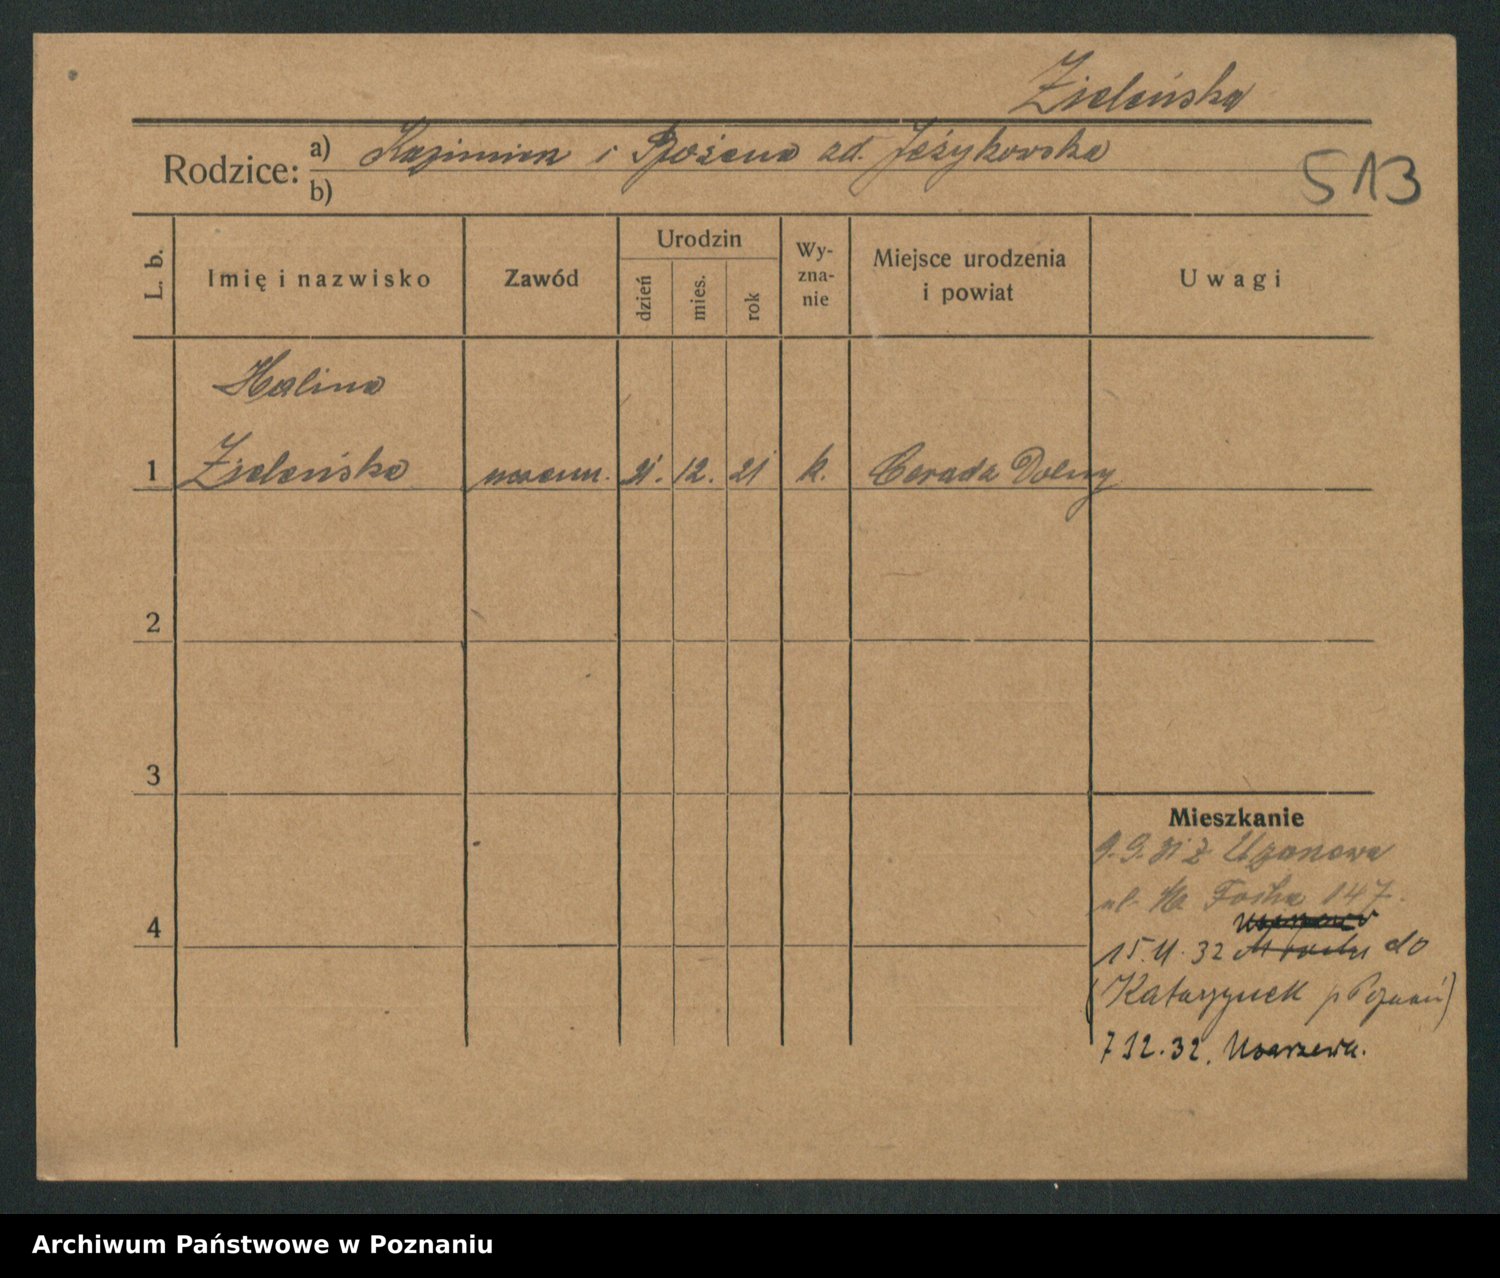 Zieleńska
Rodzice: a) Kazimierz i Bożena zd. Jeżykowska
b)
513
L. b.
Imię i nazwisko
Zawód
Urodzin
dzień
mies.
rok
Wy-
zna-
nie
Miejsce urodzenia
i powiat
Uwagi
Halina
1 Zieleńska 21. 12. 21 k. Cerada Dolny
2
3
4
Mieszkanie
9.9.31 z
ul. M. Focha 147.
15. 11. 32 do
(Katarzynek p Poznań)
7 12. 32.
Archiwum Państwowe w Poznaniu